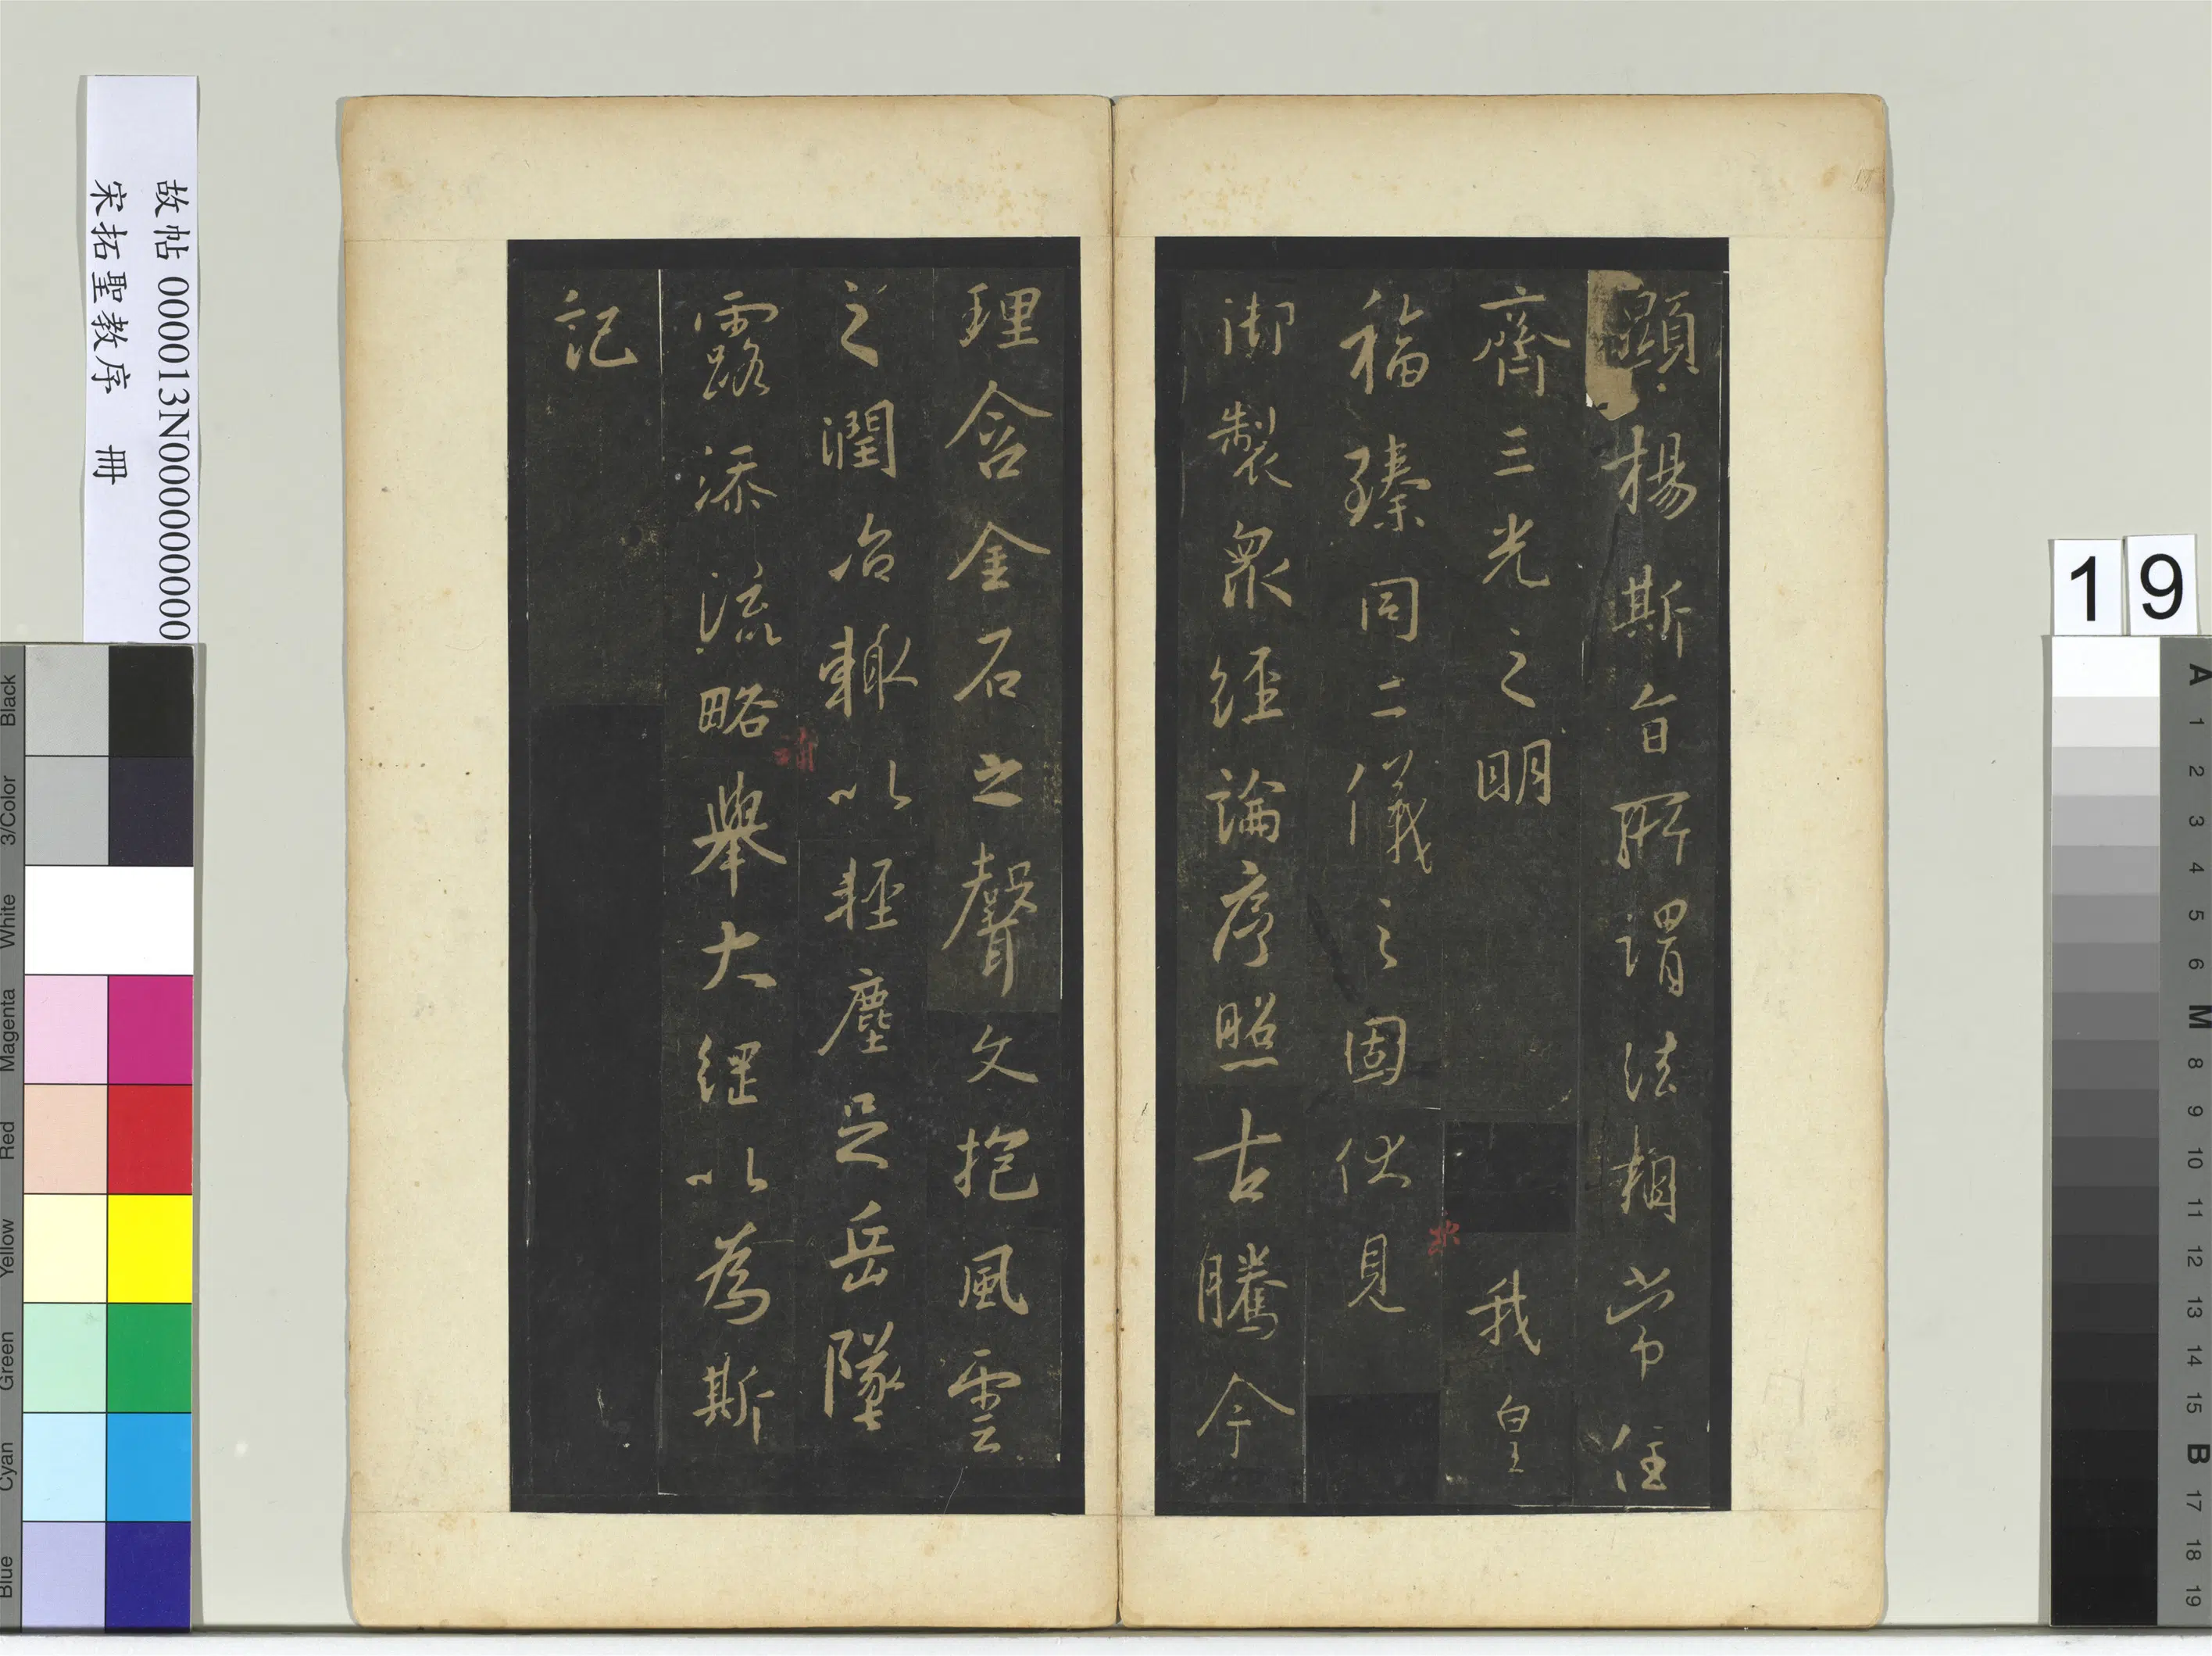 顯揚斯旨所謂法相常住
齊三光之明我皇
福臻同二儀之固伏見
御製眾經論序照古騰今
理含金石之聲文抱風雲
之潤治輙以輕塵足岳墜
露添流略舉大綱以為斯
記
故帖 000013N000000000
宋拓聖教序 冊
19
Black
3/Color
White
Magenta
Red
Yellow
Green
Cyan
Blue
A
1
2
3
4
5
6
M
8
9
10
11
12
13
14
15
B
17
18
19